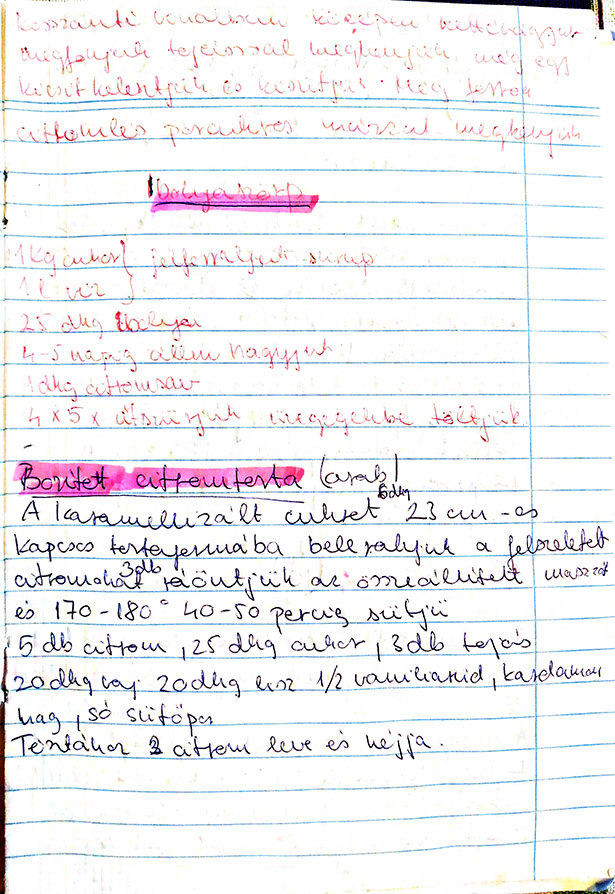 hosszanti vonalban középen bevágjuk
megfonjuk tojással megkenjük, még egy
kicsit kelentjük és kisütjük. Még forrón
citromlés porcukros mázzal megkenjük
Bolyaszörp
1 kg cukor } felforraljuk szirup
1 l víz }
25 dkg bolya
4-5 napig állni hagyjuk
1 dkg citromsav
4 x 5 x átszűrjük üvegekbe töltjük
Borított citromtorta (arab)
A karamellizált cukrot 6 dkg 23 cm -es
kapcsos tortaformába bele rakjuk a felszeletelt
citromokat 3 db ráöntjük az összeállított masszát
és 170-180° 40-50 percig sütjü
5 db citrom, 25 dkg cukor, 3 db tojás
20 dkg vaj 20 dkg lisz 1/2 vaniliarúd, kardamom
mag, só sütőpor
Tésztához 2 citrom leve és héjja.